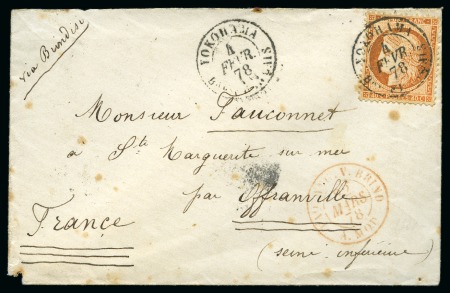 via Brindisi
YOKOHAMA
4
FEVR.
78
YOKOHAMA
4
FEVR
78
Monsieur Fauconnet
à Ste Marguerite sur mer
par Offranville
France
(Seine inférieure)